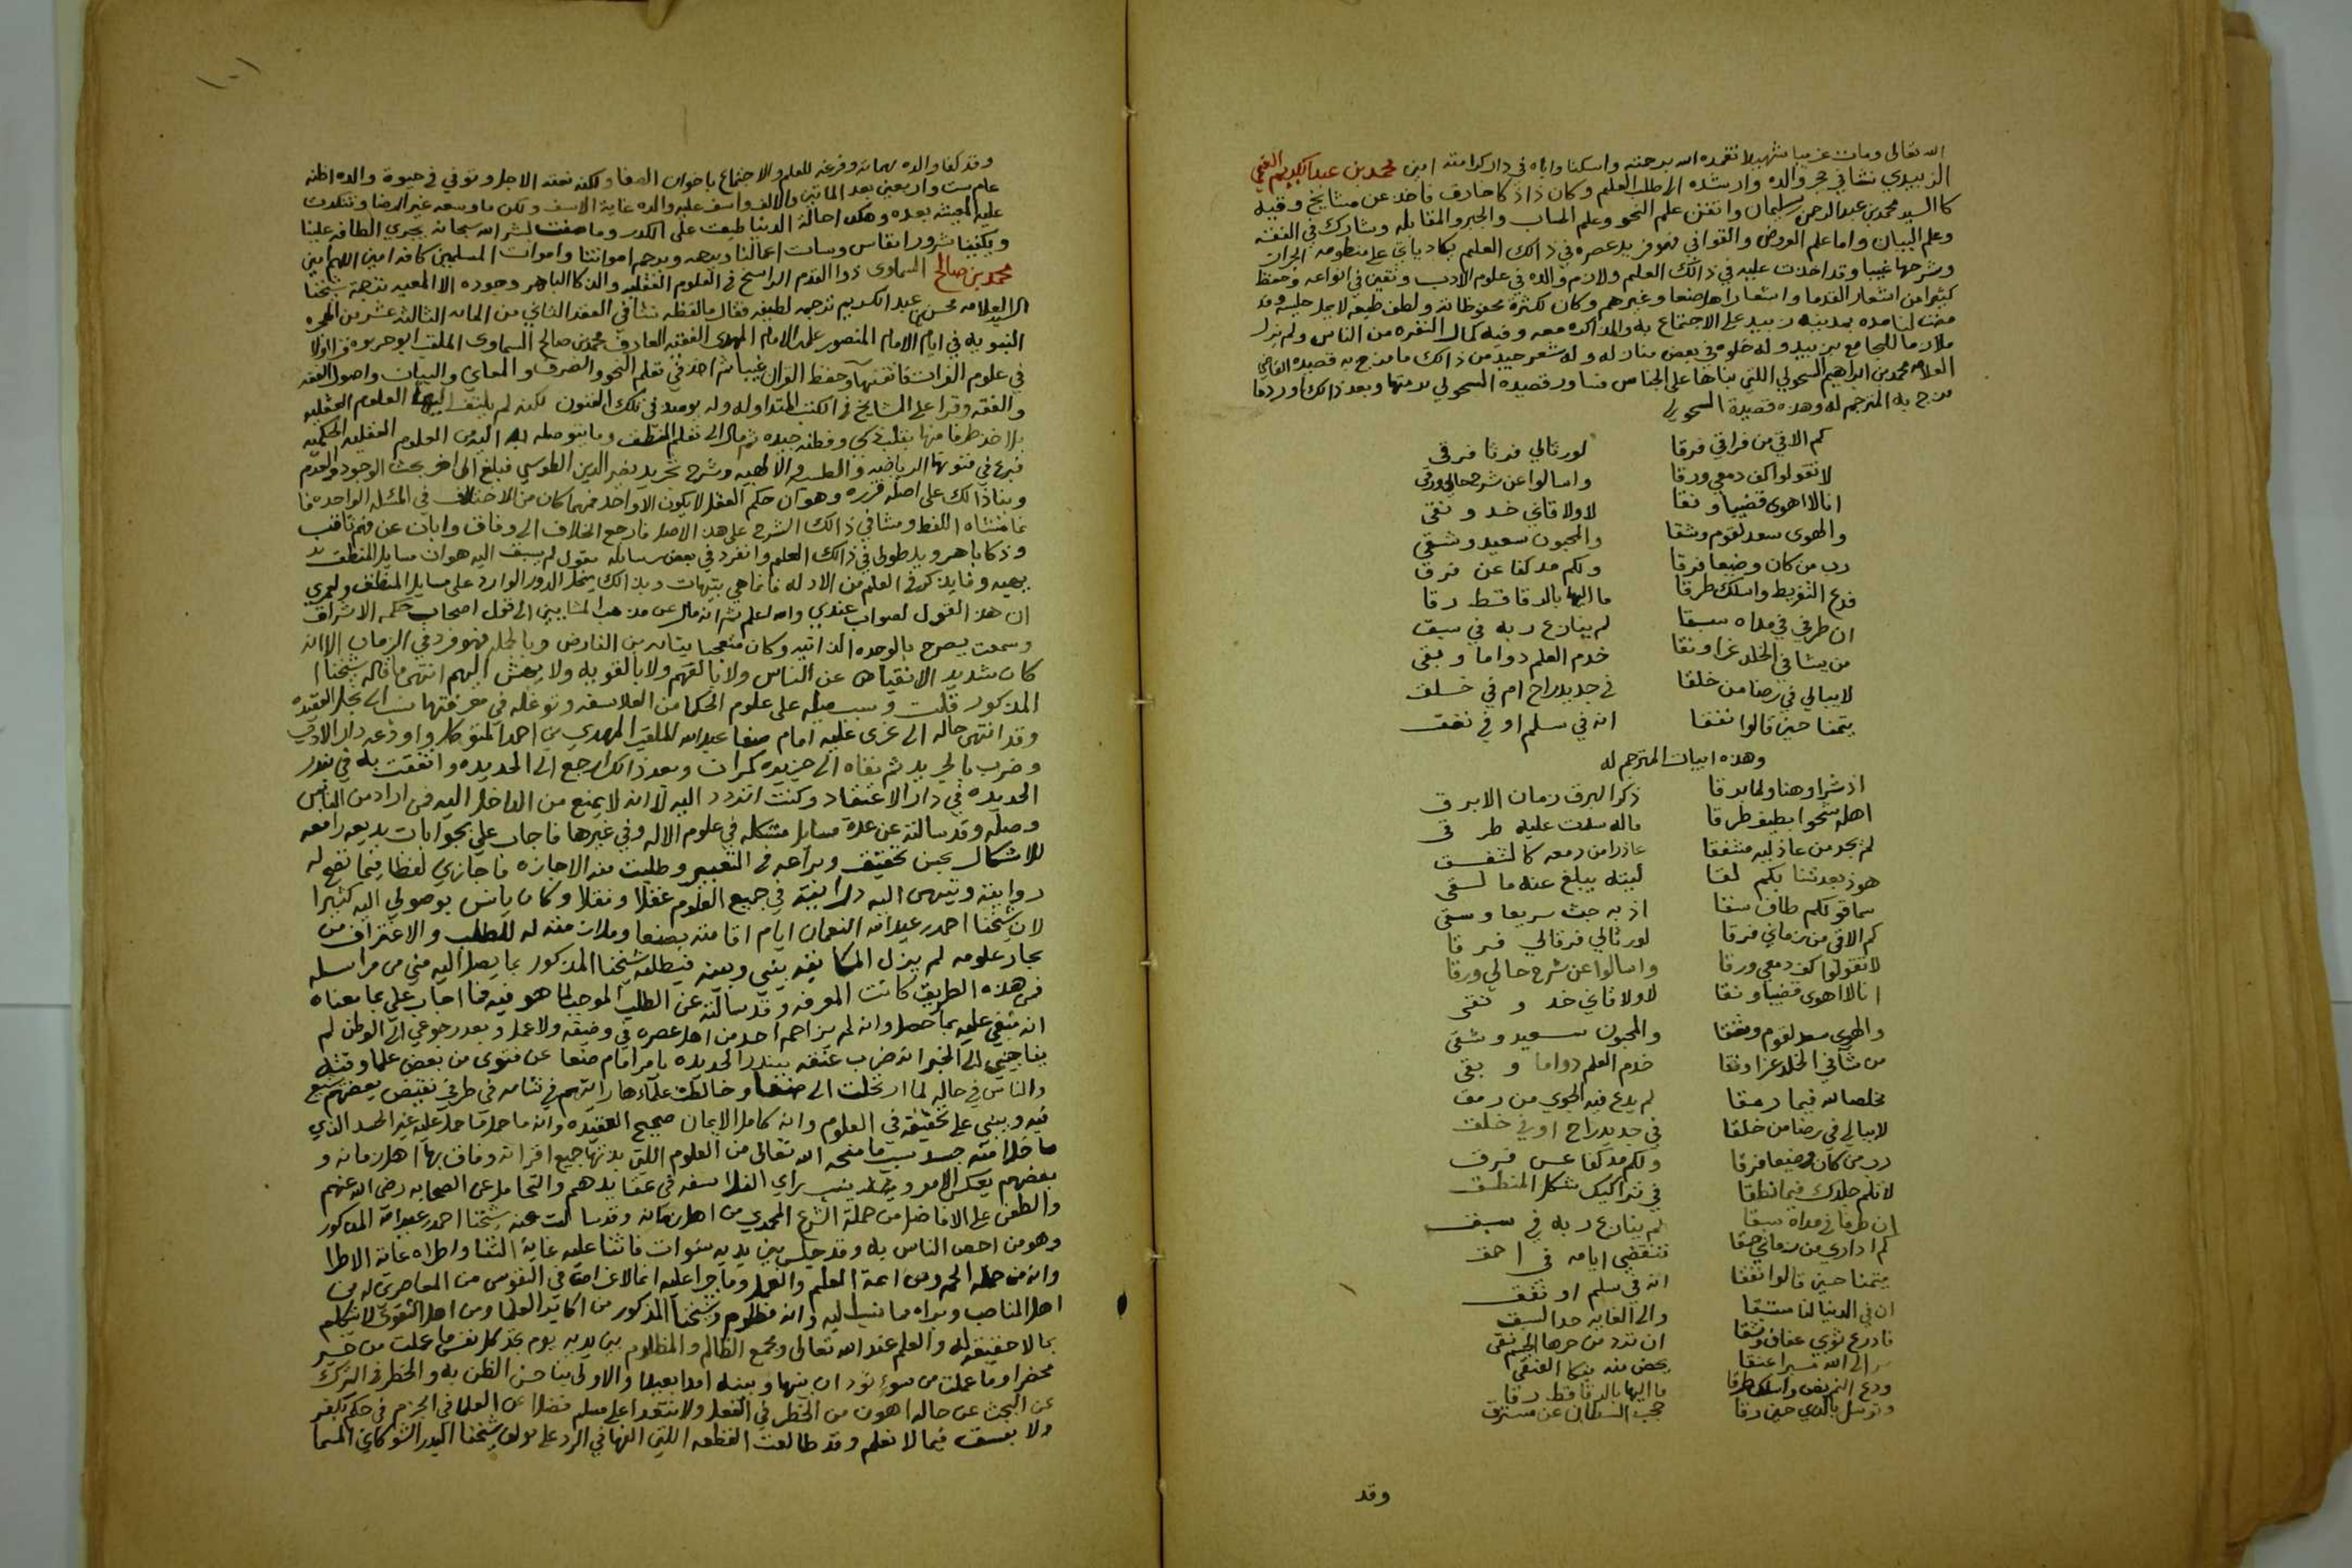 الله تعالى ومات غريبا شهيدا تغمده الله برحمته واسكنا واياه في دار كرامته امين محمد بن عبد الكريم الغنمي
الزبيدي نشا في حجر والده وارشده الى طلب العلم وكان ذا ذكا حاذق فاخذ عن مشايخ وقته
كا السيد محمد بن عبد الرحمن سليمان واتقن علم النحو وعلم الحساب والجبر والمقابله وشارك في الفقه
وعلم البيان واما علم العروض والقوافي فهو فريد عصره في ذالك العلم يكاد ياتي على منظومه الخزاز
وشرحها غيبا وقد اخذت عليه في ذالك العلم ولازم والده في علوم الادب وتفنن في انواعه وحفظ
كثيرا من اشعار القدما واشعار اهل صنعا وغيرهم وكان لكثرة محفوظاته ولطف طبعه لا يمل جليسه وقد
مضت لنا مده بمدينه زبيد على الاجتماع به والمذاكره معه وفيه كمال النفره من الناس ولم يزل
ملازما للجامع بزبيد وله خلوه في بعض منازله وله شعر جيد من ذالك ما مزج به قصيده القاضي
العلامه محمد بن ابراهيم السحولي اللتي بناها على الجناس قصيده السحولي برمتها وبعد ذالك اورد ما
مزج به المترجم له وهذه قصيدة السحولي
كم الاقي من فراقي فرقا لو رثا لي فرثا فرقي
لا تقولوا كف دمعي ورقا واسالوا عن شرح حالي ورقي
انا لا اهوى قضيبا ونقا لا ولا قاني خد ونقي
والهوى سعد لقوم وشقا والمحبون سعيد وشقي
رب من كان وضيعا فرقا ولكم مد كفا عن فرق
فدع التفريط واسلك طرقا ما اليها بالرقا قط رقا
ان طرفي في مداه سبقا لم ينازع ربه في سبق
من يشا في الخلد عزا ونقا خدم العلم دواما وبقى
لا يبالي في رضا من خلقا في جديد راح ام في خلق
يتمنا حين قالوا نفقا انه في سلم او في نفق
وهذه ابيات المترجم له
اذ شرا وهنا ولما برقا ذكر البرق زمان الابرق
اهله شحوا بطيف طرقا ماله سدت عليه طرقي
لم يجد من عاذليه مشفقا عاذرا من دمعه كالشفق
هو ذ بعدتنا بكم لقا ليته يبلغ عنه ما لقي
سما قولكم طاف سقا اذ به جث سريعا وسقي
كم الاقي من زماني فرقا لو رثا لي فرقا لي فرقا
لا تقولوا كف دمعي ورقا واسالوا عن شرح حالي ورقا
انا لا اهوى قضيبا ونقا لا ولا قاني خد ونقي
والهوى سعد لقوم وشقا والمحبون سعيد وشقي
من شا في الخلد عزا ونقا خدم العلم دواما وبقى
مخلصا لله فيما رمقا لم يدع فيه الجوي من رمق
لا يبالي في رضا من خلقا في جديد راح او في خلق
رب من كان وضيعا فرقا ولكم مد كفا عن فرق
لا تلم جلدك فيما نطقا في تراكيب شكل المنطق
ان طرفا في مداه سبقا لم ينازع ربه في سبق
كم اداري من زماني حمقا تنقضي ايامه في احمق
يتمنا حين قالوا نفقا انه في سلم او نفق
ان في الدنيا لنا مستقا والى الغايه حد السبق
فادرع ثوبي عفاف ونقا ان ترد من حرها الجسم نقي
سر الى الله
ودع التفريط واسلك طرقا ما اليها بالرقا قط رقا
وتوسل بالذي حين رقا حجب السلطان عن مسترق
وقد
١٠١
وقد كفا والده مهماته وفرغه للعلم والاجتماع باخوان الصفا ولكنه بغته الاجل وتوفي في حيوة والده اظنه
عام ست واربعين بعد الماتين والالف واسف عليه والده غاية الاسف ولكن ما وسعه غير الرضا وتنكدت
عليه المعيشه بعده وهكذا حالة الدنيا طبعت على الكدر وما صفت لبشر الله سبحانه يجري الطافه علينا
ويكفينا شرور انفاس وسيات اعمالنا ويرحم امواتنا واموات المسلمين كافه امين اللهم امين
محمد بن صالح السماوي ذو القدم الراسخ في العلوم العقليه والذكا الباهر وجوده الالمعيه ترجمه شيخنا
السيد العلامه محسن بن عبد الكريم ترجمه لطيفه فقال ما لفظه نشا في العقد الثاني من المايه الثالثه عشر من الهجره
النبويه في ايام الامام المنصور على الامام المهدي الفقيه العارف محمد بن صالح السماوي الملقب ابو حريوه قرا اولا
في علوم القران فاتقنها وحفظ القران غيبا ثم اخذ في تعلم النحو والصرف والمعاني والبيان واصول الفقه
والفقه وقرا على المشايخ في الكتب المتداوله وله يوميذ في تلك الفنون لكنه لم يلتفت اليها العلوم العقليه
بل اخذ طرفا منها بقلب ذكي وفطنه جيده ثم مال الى تعلم المنطق وما يتوصله به اليه من العلوم العقليه الحكميه
فبرع في فنونها الرياضيه والطبيه والالهيه وشرح تجريد نصير الدين الطوسي فبلغ الى اخر بحث الوجود والعدم
وبنا ذالك على اصله قرره وهو ان حكم العقل لا يكون الا واحد فمهما كان من الاختلاف في المسئله الواحده فا
نما منشاه اللفظ ومشا في ذالك الشرح على هذا الاصل فارجع الخلاف الى وفاق وابان عن فهم ثاقب
وذكا باهر ويد طولى في ذالك العلم وانفرد في بعض رسايله بقول لم يسبق اليه هو ان مسايل المنطق بد
يهيه وما يذكر في العلم من الادله فانما هي بتيهات وبذالك ينحل الدور الوارد على مسايل المنطق ولعمري
ان هذا القول لصواب عندي والله اعلم ثم انه مال عن مذهب المشايين الى قول اصحاب حكم الاشراق
وسمعت يصرح بالوحده الذاتيه وكان متعجبا بتايه بن الفارض وبالجمله فهو فرد في الزمان الا انه
كان شديد الانقباض عن الناس ولا بالفهم ولا بالفويه ولا يهش اليهم انتهى ما قاله شيخنا
المذكور قلت وسبب ميله على علوم الحكما من الفلاسفه وتوغله في معرفتها نسب الى بخل العقيده
وقد انتهى حاله الى غزى عليه امام صنعا عبدالله الملقب المهدي بن احمد المتوكل واودعه دار الادب
وضرب بالجريد ثم نفاه الى جزيره كمران وبعد ذالك ارجع الى الحديده واتفقت به في بندر
الحديده في دار الاعتقاد وكنت اتردد اليه لانه لا يمنع من الداخل اليه فمن اراد من الناس
وصله وقد سالته عن عدة مسايل مشكله في علوم الاله وفي غيرها فاجاب علي بجوابات بديعه رافعه
للاشكال بحسن تحقيق وبراعه في التعبير وطلبت منه الاجازه فاجازني لفظا فيما تصح له
روايته وتنتهي اليه درايته في جميع العلوم عقلا ونقلا وكان يانس بوصولي اليه كثيرا
لان شيخنا احمد عبدالله النعمان ايام اقامته بصنعا وملازمته له للطلب والاغتراف من
بحار علومه لم يزل المكاتبه بيني وبينه فيطلعه شيخنا المذكور بما يصل اليه مني من مراسله
فمن هذه الطريق كانت المعرفه وقد سالته عن الطلب الموجب لما هو فيه فما اجاب علي بما معناه
انه بقي عليه بما حصل وانه لم يزاحم احد من اهل عصره في وضيفه ولا عمل وبعد رجوعي الى الوطن لم
يفاجيني الى الخبر انه ضرب عنقه ببندر الحديده بامر امام صنعا عن فتوى من بعض علما وقته
والناس في حاله لما ارتحلت الى صنعا وخالطت علماءها رايتهم في شانه في طرفي نقيض بعضهم يبع
فيه ويبني على تحقيقه في العلوم وانه كامل الايمان صحيح العقيده وانه ما حمل ما حمل عليه غير الحسد الذي
ما خلا منه جسد بسبب ما منحه الله تعالى من العلوم اللتي بذ بها جميع اقرانه وفاق بها اهل زمانه و
بعضهم بعكس الامر ويتدين براي الفلاسفه في عقايدهم والتحامل على الصحابه رضي الله عنهم
والطعن على الافاضل من حملة الشرع المحمدي من اهل زمانه وقد سالت عنه شيخنا احمد عبدالله المذكور
وهو من اخص الناس به وقد جلس بين يديه سنوات فاثنا عليه غاية الثنا واطراه غاية الاطرا
وانه من جمله الحمد من ائمة العلم والعمل وما جرا عليه انما الاغراض في النفوس من المعاصرين له من
اهل المناصب وبراه مما نسب اليه وانه مظلوم وشيخنا المذكور من اكابر العلما ومن اهل التقوى لا يتكلم
بما لا حقيقه له والعلم عند الله تعالى ومجمع الظالم والمظلوم بين يديه يوم تجد كل نفس ما عملت من خير
محضرا وما عملت من سوء تود ان بينها وبينه امدا بعيدا والاولى بنا حسن الظن به والخطر في الترك
عن البحث عن حاله اهون من الخطر في الفعل ولا نتعدا على مسلم فضلا عن العلما في الجزم في حكم بكفر
ولا بفسق فيما لا نعلم وقد طالعت القطعه اللتي الفها في الرد على مولف شيخنا البدر الشوكاني المسما